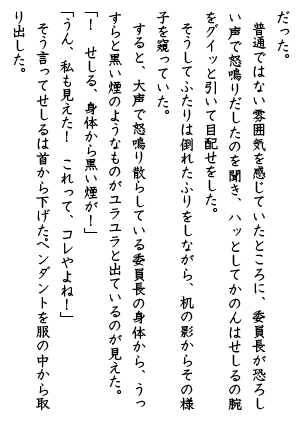 だった。
　普通ではない雰囲気を感じていたところに、委員長が恐ろし
い声で怒鳴りだしたのを聞き、ハッとしてかのんはせしるの腕
をグイッと引いて目配せをした。
　そうしてふたりは倒れたふりをしながら、机の影からその様
子を窺っていた。
　すると、大声で怒鳴り散らしている委員長の身体から、うっ
すらと黒い煙のようなものがユラユラと出ているのが見えた。
「！　せしる、身体から黒い煙が！」
「うん、私も見えた！　これって、コレやよね！」
　そう言ってせしるは首から下げたペンダントを服の中から取
り出した。